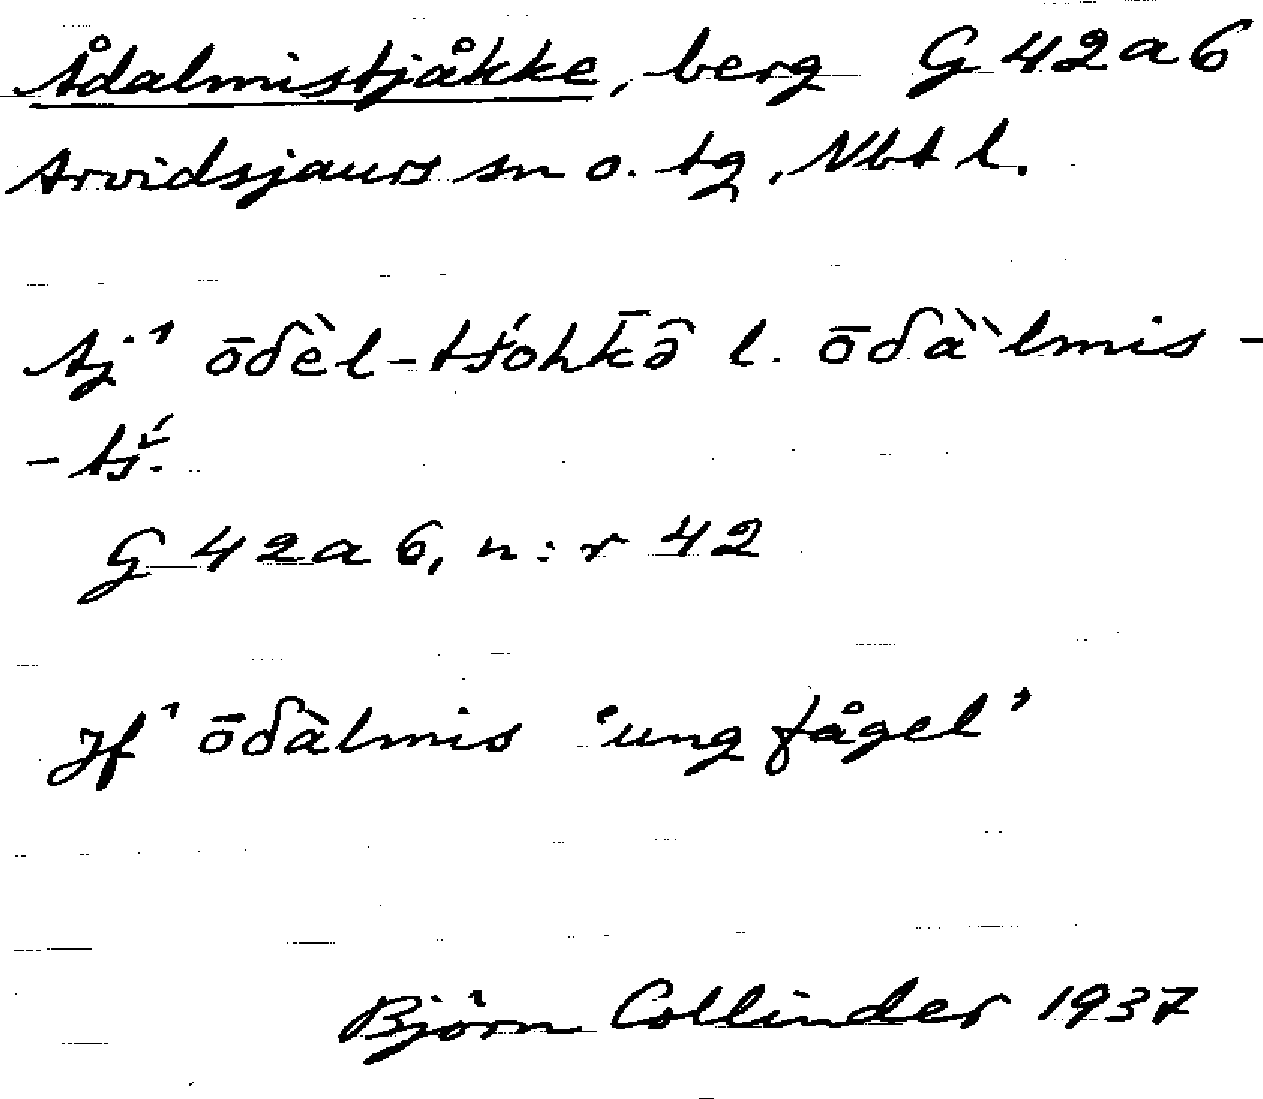 Ådalmistjåkke, berg G 42 a 6
Arvidsjaurs sn o. tg, Nbt l.
Aj¹ ōδèl-tśohk̄ə̂ l. ōδàlmis-
-tś.
G 42 a 6, n:r 42
Jf¹ ōδàlmis 'ung fågel'
Björn Collinder 1937